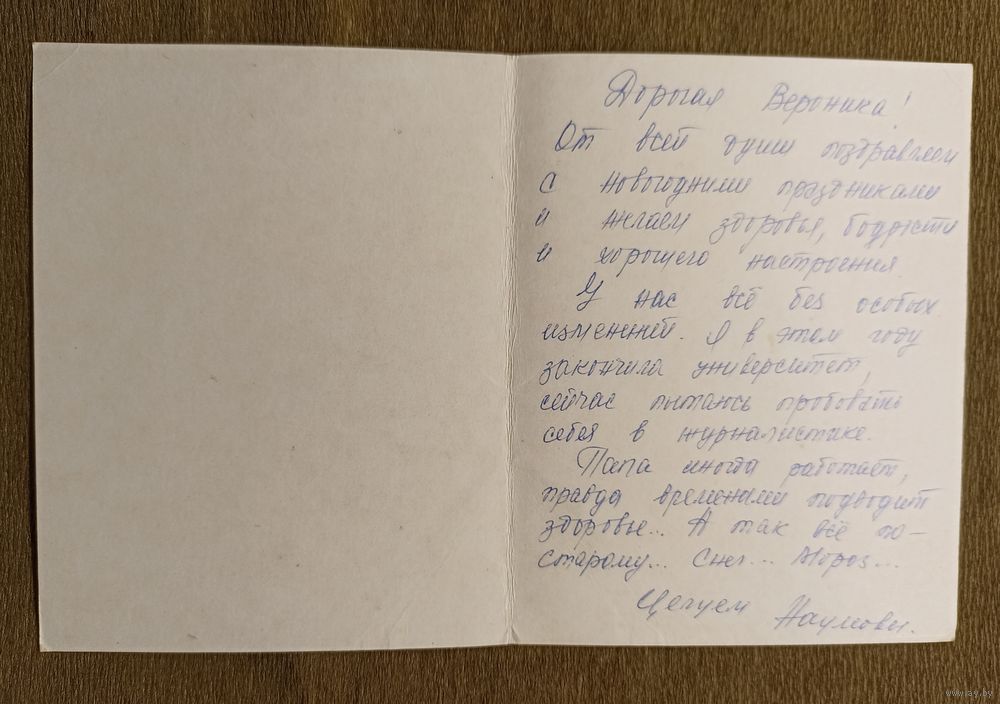 Дорогая Вероника!
От всей души поздравляем
с новогодними праздниками
и желаем здоровья, бодрости
и хорошего настроения.
У нас всё без особых
изменений. Я в этом году
закончила университет,
сейчас пытаюсь пробовать
себя в журналистике.
Папа иногда работает,
правда временами подводит
здоровье... А так всё по-
старому... Снег... Мороз...
Целуем Наумовы.
www.ay.by